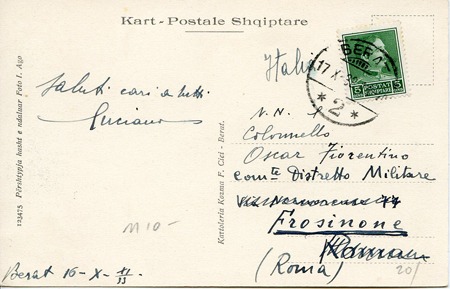 Kart-Postale Shqiptare
Italia
BERAT
17 X
*2*
5 POSTAT 5
SHQIPTARE
Saluti cari a tutti
Luciano
N. N.
Colonnello
Oscar Fiorentino
comte Distretto Militare
Frosinone
Roma
(Roma)
M10-
20/
Berat 16-X-
123475 Përshtypja hasht e ndaluar Foto I. Ago
Kartoleria Kozma F. Cici - Berat.